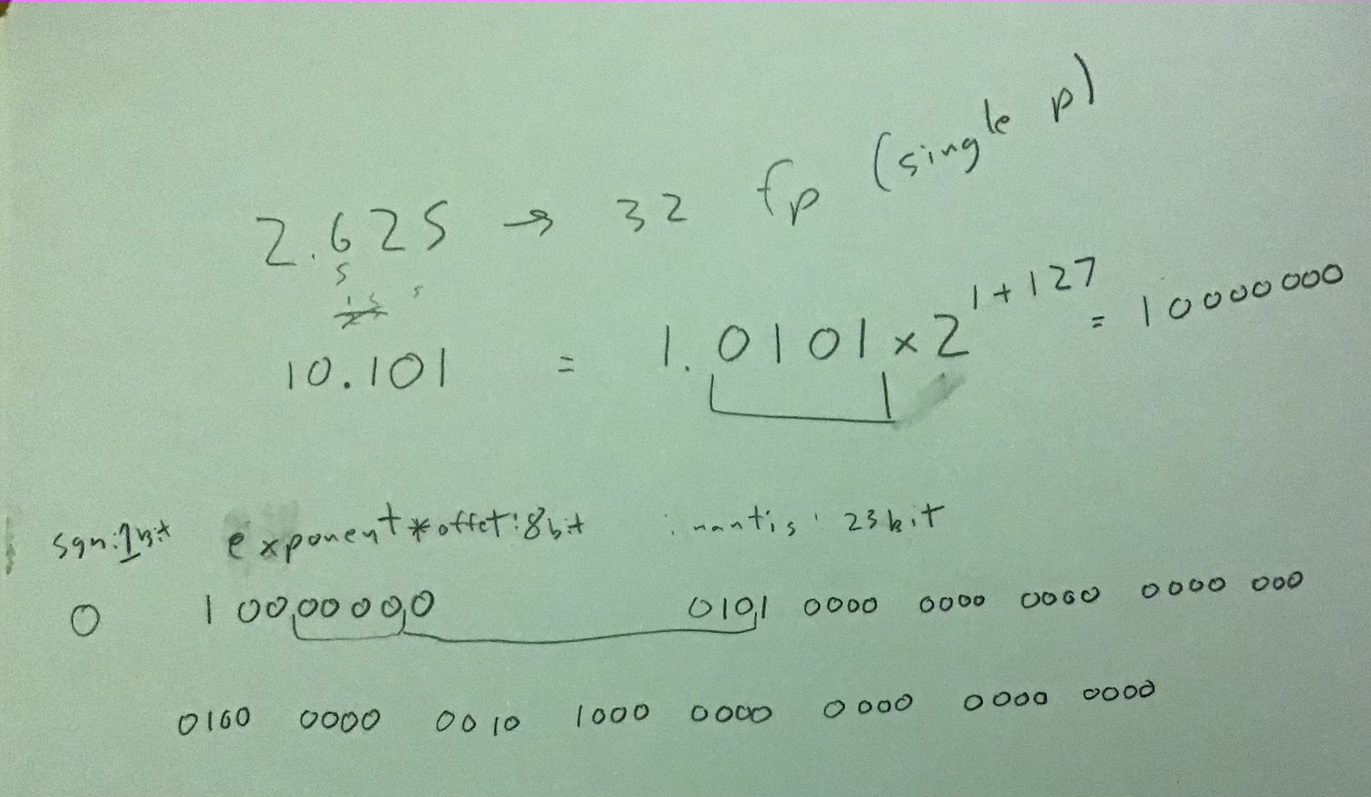 2.625 → 32 fp (single p)
5
10.101 = 1.0101 x 2^1+127 = 10000000
sgn:1bit exponent*offet:8bit : mantis : 23bit
0 10000000 0101 0000 0000 0000 0000 000
0100 0000 0010 1000 0000 0000 0000 0000